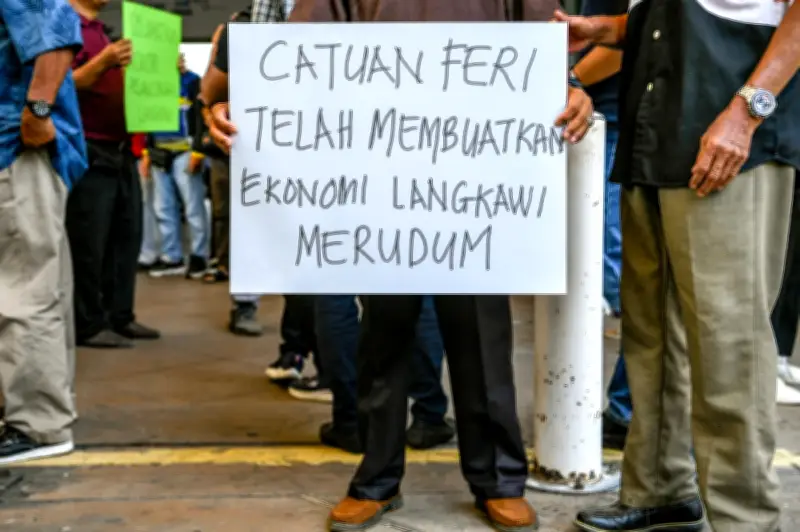 CATUAN FERI
TELAH MEMBUATKAN
EKONOMI LANGKAWI
MERUDUM